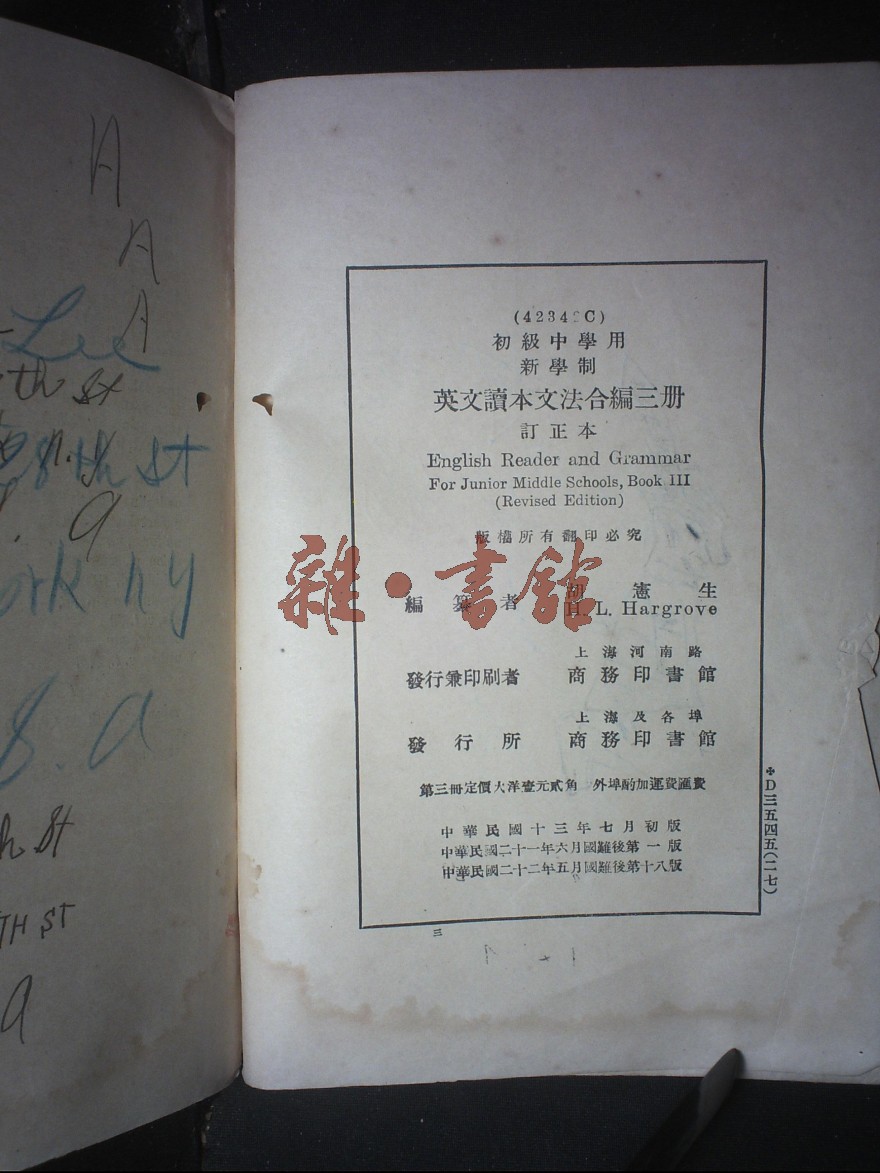 H
A
A
Lee
th St
8th St
a
ork n y
8. a
h St
TH ST
a
初級中學用
新學制
英文讀本文法合編三册
訂正本
English Reader and Grammar
For Junior Middle Schools, Book III
(Revised Edition)
版權所有翻印必究
編纂者 胡憲生
H. L. Hargrove
雜·書館
上海河南路
發行兼印刷者 商務印書館
上海及各埠
發行所 商務印書館
第三冊定價大洋壹元貳角 外埠酌加運費匯費
中華民國十三年七月初版
中華民國二十一年六月國難後第一版
中華民國二十二年五月國難後第十八版
D三五四五(二七)
三